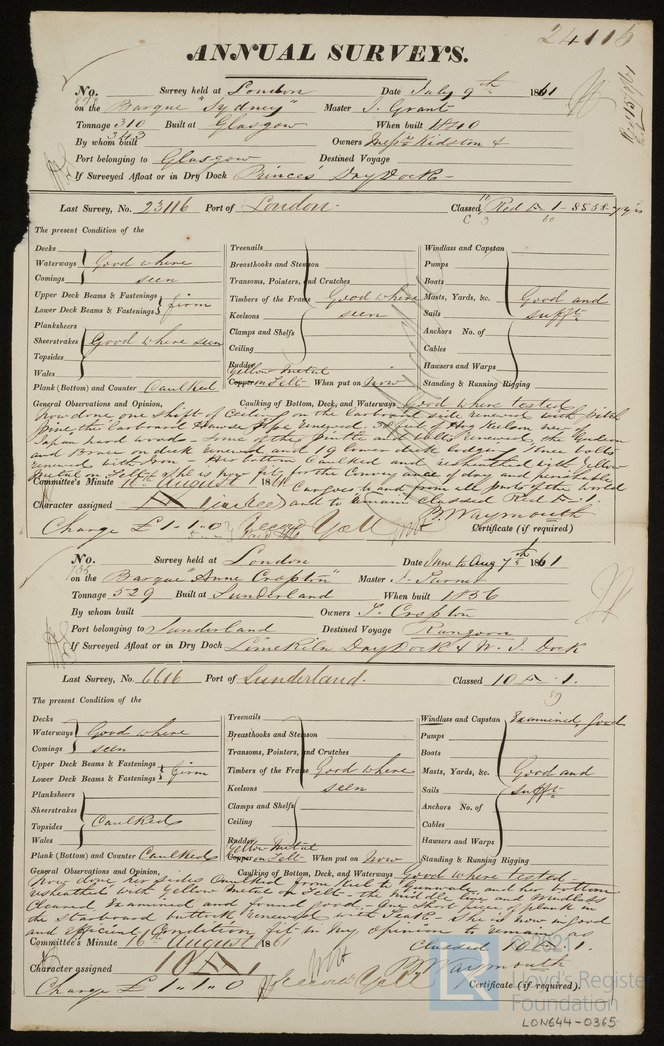 24116
ANNUAL SURVEYS.
No. Survey held at London Date July 9th 1861
on the Barque "Sydney" Master J. Grant
Tonnage 310 Built at Glasgow When built 1840
343
By whom built Owners Messrs Kidston &
Port belonging to Glasgow Destined Voyage
If Surveyed Afloat or in Dry Dock Princes' Dry Dock
Last Survey, No. 23116 Port of London. Classed, Red A 1
The present Condition of the
Decks
Waterways Good where
Comings seen
Upper Deck Beams & Fastenings
Lower Deck Beams & Fastenings firm
Planksheers
Sheerstrakes Good where seen
Topsides
Wales
Plank (Bottom) and Counter Caulked
Treenails
Breasthooks and Stemson
Transoms, Pointers, and Crutches
Timbers of the Frame Good where
Keelsons seen
Clamps and Shelfs
Ceiling
Rudder
Yellow Metal
Copper on Felt When put on Now
Windlass and Capstan
Pumps
Boats
Masts, Yards, &c. Good and
Sails sufft
Anchors No. of
Cables
Hawsers and Warps
Standing & Running Rigging
General Observations and Opinion, Caulking of Bottom, Deck, and Waterways Good where tested
Now done one shift of Ceiling on the larboard side renewed with pitch
pine the larboard Hawse pipe renewed. 38 feet of Keelson new of
Japan hard wood - some of the pintle and bolts renewed, the
and Brace on deck renewed and 19 lower deck lodging knee bolts
renewed with iron. Her bottom Caulked and resheathed with Yellow
Metal on Felt & she is now fit for the Conveyance of dry and perishable
Cargoes to and from all parts of the world
Committee's Minute 16th August 1861
and to remain classed Red A 1.
Character assigned A 1 in red
B. Waymouth
Charge £1.1.0 Certificate (if required)
No. Survey held at London Date June to Aug 7th 1861
on the Barque "Anne Cropton" Master J. Turner
Tonnage 529 Built at Sunderland When built 1856
By whom built Owners T. Cropton
Port belonging to Sunderland Destined Voyage Rangoon
If Surveyed Afloat or in Dry Dock Limekiln Dry Dock & W. I. Dock
Last Survey, No. 6616 Port of Sunderland. Classed 10 A 1.
The present Condition of the
Decks
Waterways Good where
Comings seen
Upper Deck Beams & Fastenings
Lower Deck Beams & Fastenings firm
Planksheers
Sheerstrakes
Topsides Caulked
Wales
Plank (Bottom) and Counter Caulked
Treenails
Breasthooks and Stemson
Transoms, Pointers, and Crutches
Timbers of the Frame Good where
Keelsons seen
Clamps and Shelfs
Ceiling
Rudder
Yellow Metal
Copper on Felt When put on Now
Windlass and Capstan Examined, good
Pumps
Boats
Masts, Yards, &c. Good and
Sails sufft
Anchors No. of
Cables
Hawsers and Warps
Standing & Running Rigging
General Observations and Opinion, Caulking of Bottom, Deck, and Waterways Good where tested
Now done her sides Caulked from keel to Gunwale and her bottom
resheathed with Yellow Metal on Felt - the middle line and Windlass
Cleared Examined and found good. One short piece of plank in
the starboard buttock renewed with Teak - She is now in good
and efficient Condition fit in my opinion to remain as
Classed 10 A 1.
Committee's Minute 16th August 1861
Character assigned 10 A 1
B. Waymouth
Charge £1.1.0 Certificate (if required).
© 2021
LR
Lloyd's Register
Foundation
LON644-0365